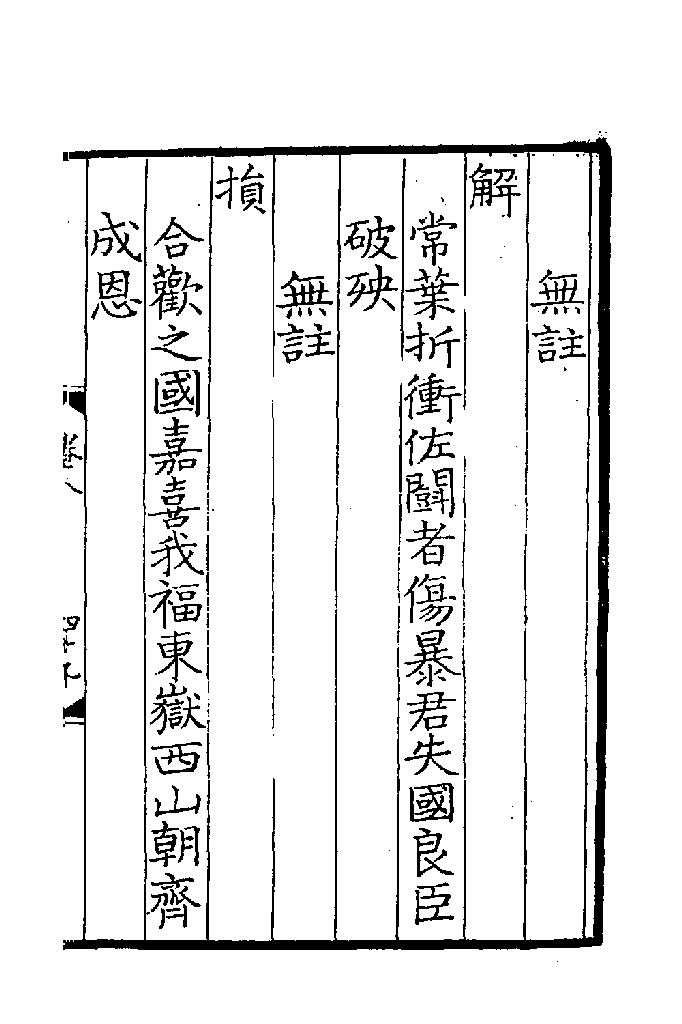 無註
解
常葉折衝佐闘者傷暴君失國良臣
破殃
無註
損
合歡之國嘉喜我福東嶽西山朝齊
成恩